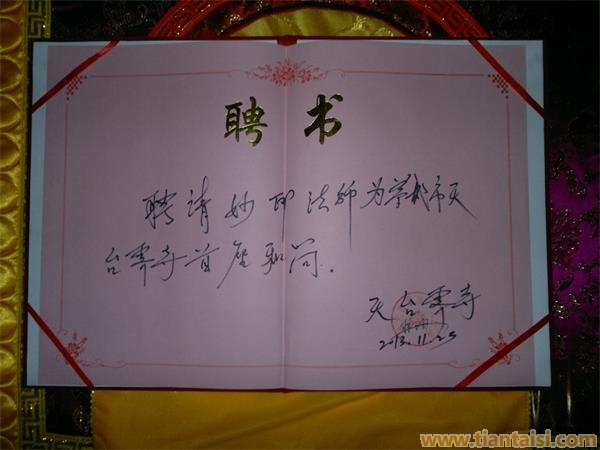 聘书
聘请妙印法师为市天
台寺首座和尚.
天台寺
2013.11.25
www.tiantaisi.com